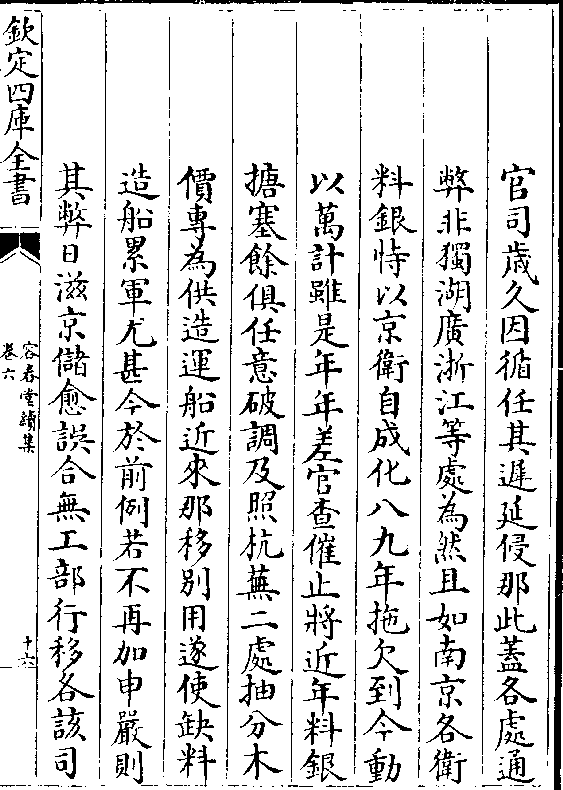 官司歳久因循任其遲延侵那此蓋各處通
弊非獨湖廣浙江等處為然且如南京各衛
料銀恃以京衛自成化八九年拖欠到今動
以萬計雖是年年差官查催止將近年料銀
搪塞餘俱任意破調及照杭蕪二處抽分木
價專為供造運船近來那移别用遂使缺料
造船累軍尤甚今於前例若不再加申嚴則
其弊日滋京儲愈誤合無工部行移各該司
欽定四庫全書
容春堂續集
卷六
十六